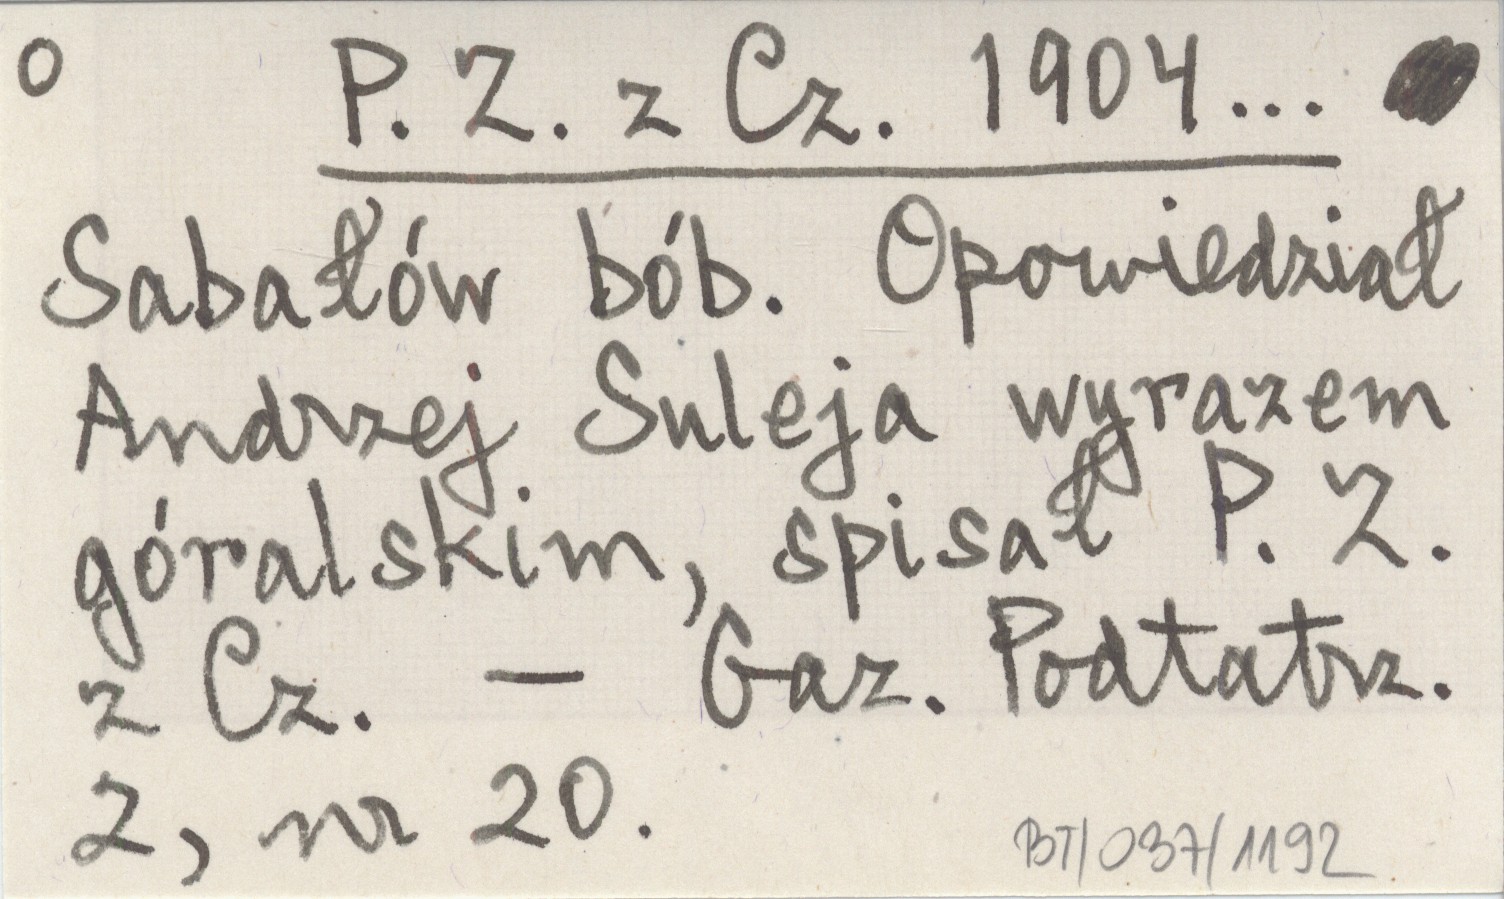 O P. Z. z Cz. 1904...
Sabałów bób. Opowiedział
Andrzej Suleja wyrazem
góralskim, spisał P. Z.
z Cz. — Gaz. Podtatrz.
2, nr 20.
BT/037/1192